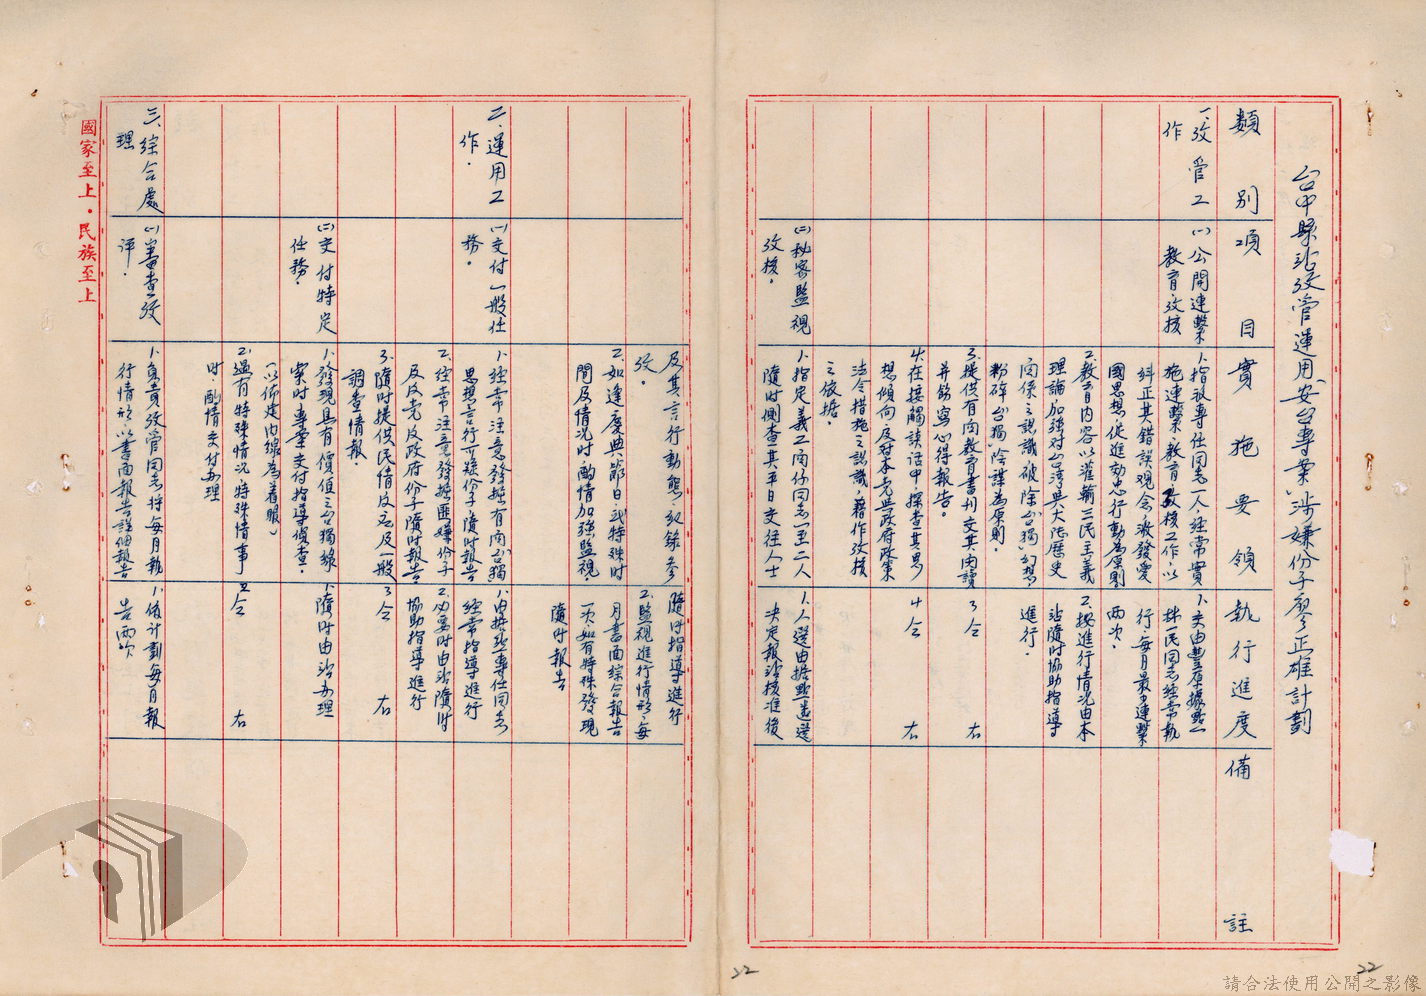 台中縣站考管運用“安台專案”涉嫌份子廖正雄計劃
類別
項目
實施要領
執行進度
備註
一、考管工
作
㈠公開連繫
教育考核
1.指派專任同志一人,經常實
施連繫、教育、考核工作,以
糾正其錯誤观念,激發愛
國思想,促進効忠行動為原則
2.教育內容以灌輸三民主義
理論,加強对台湾與大陸歷史
関係之認識,破除“台獨”幻想,
粉碎“台獨”陰謀為原則。
3.提供有関教育書刊交其閱讀
并飭寫心得報告。
4.在接觸談話中,探查其思
想傾向,及对本党與政府政策
法令措施之認識,藉作考核
之依據。
1.交由豐原據點
林一民同志經常執
行,每月最少連繫
兩次。
2.执進行情況由本
站隨時協助指導
進行。
3.仝右
4.仝右
㈡秘密監視
考核。
1.指定義工関係同志一至二人
隨時側查其平日交往人士
及其言行動態,紀錄參
考。
2.如逢慶典節日,或特殊时
間及情況时,酌情加強監視。
1.人選由據點遴選
决定報站核准後
隨时指導進行
2.監視進行情形,每
月書面綜合報告
一次,如有特殊發現
隨时報告
二、運用工
作。
㈠交付一般任
務。
1.經常注意發掘有関“台獨”
思想言行可疑份子,隨时報告
2.經常注意發掘匪嫌份子
及反党反政府份子,隨时報告
3.隨时提供民情反应及一般
調查情報。
1.由據點專任同志
經常指導進行
2.必要时由站隨时
協助指導進行
3.仝右
㈡交付特定
任務。
1.發現具有價值之台獨線
索时,專案交付指導偵查。
(以佈建內線為着眼)
2.遇有特殊情況,特殊情事
时,酌情交付办理
1.隨时由站办理
2.仝右
三、綜合處
理
㈠審查考
評。
1.負責考管同志將每月執
行情形,以書面報告詳細報告
1.依計劃每月報
告兩次
國家至上。民族至上
22
22
請合法使用公開之影像